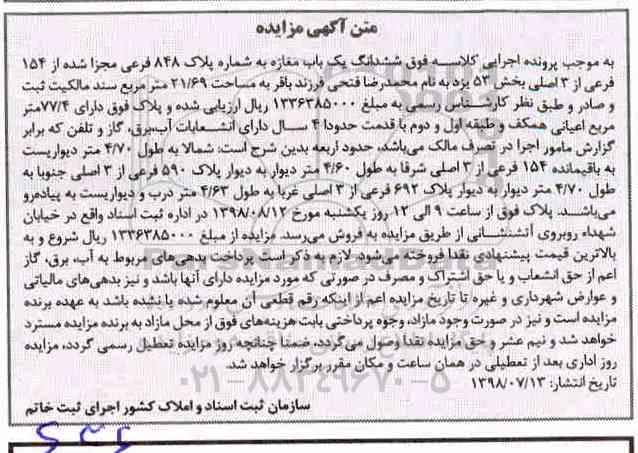 متن آگهی مزایده
به موجب پرونده اجرایی کلاسه فوق ششدانگ یک باب مغازه به شماره پلاک ۸۴۸ فرعی مجزا شده از ۱۵۴
فرعی از ۳ اصلی بخش ۵۳ یزد به نام محمدرضا فتحی فرزند باقر به مساحت ۲۱/۶۹ متر مربع سند مالکیت ثبت
و صادر و طبق نظر کارشناس رسمی به مبلغ ۱۳۳۶۳۸۵۰۰۰ ریال ارزیابی شده و پلاک فوق دارای ۷۷/۴متر
مربع اعیانی همکف و طبقه اول و دوم با قدمت حدودا ۴ سال دارای انشعابات آب،برق، گاز و تلفن که برابر
گزارش مامور اجرا در تصرف مالک می‌باشد، حدود اربعه بدین شرح است: شمالا به طول ۴/۷۰ متر دیواریست
به باقیمانده ۱۵۴ فرعی از ۳ اصلی شرقا به طول ۴/۶۰ متر دیوار به دیوار پلاک ۵۹۰ فرعی از ۳ اصلی جنوبا به
طول ۴/۷۰ متر دیوار به دیوار پلاک ۶۹۲ فرعی از ۳ اصلی غربا به طول ۴/۶۳ متر درب و دیواریست به پیاده‌رو
می‌باشد. پلاک فوق از ساعت ۹ الی ۱۲ روز یکشنبه مورخ ۱۳۹۸/۰۸/۱۲ در اداره ثبت اسناد واقع در خیابان
شهداء روبروی آتشنشانی از طریق مزایده به فروش می‌رسد. مزایده از مبلغ ۱۳۳۶۳۸۵۰۰۰ ریال شروع و به
بالاترین قیمت پیشنهادی نقدا فروخته می‌شود. لازم به ذکر است پرداخت بدهی‌های مربوط به آب، برق، گاز
اعم از حق انشعاب و یا حق اشتراک و مصرف در صورتی که مورد مزایده دارای آنها باشد و نیز بدهی‌های مالیاتی
و عوارض شهرداری و غیره تا تاریخ مزایده اعم از اینکه رقم قطعی آن معلوم شده یا نشده باشد به عهده برنده
مزایده است و نیز در صورت وجود مازاد، وجوه پرداختی بابت هزینه‌های فوق از محل مازاد به برنده مزایده مسترد
خواهد شد و نیم عشر و حق مزایده نقدا وصول می‌گردد، ضمنا چنانچه روز مزایده تعطیل رسمی گردد، مزایده
روز اداری بعد از تعطیلی در همان ساعت و مکان مقرر برگزار خواهد شد.
تاریخ انتشار: ۱۳۹۸/۰۷/۱۳
۰۲۱-۸۸۳۴۹۶۷۰-۵
سازمان ثبت اسناد و املاک کشور اجرای ثبت خاتم